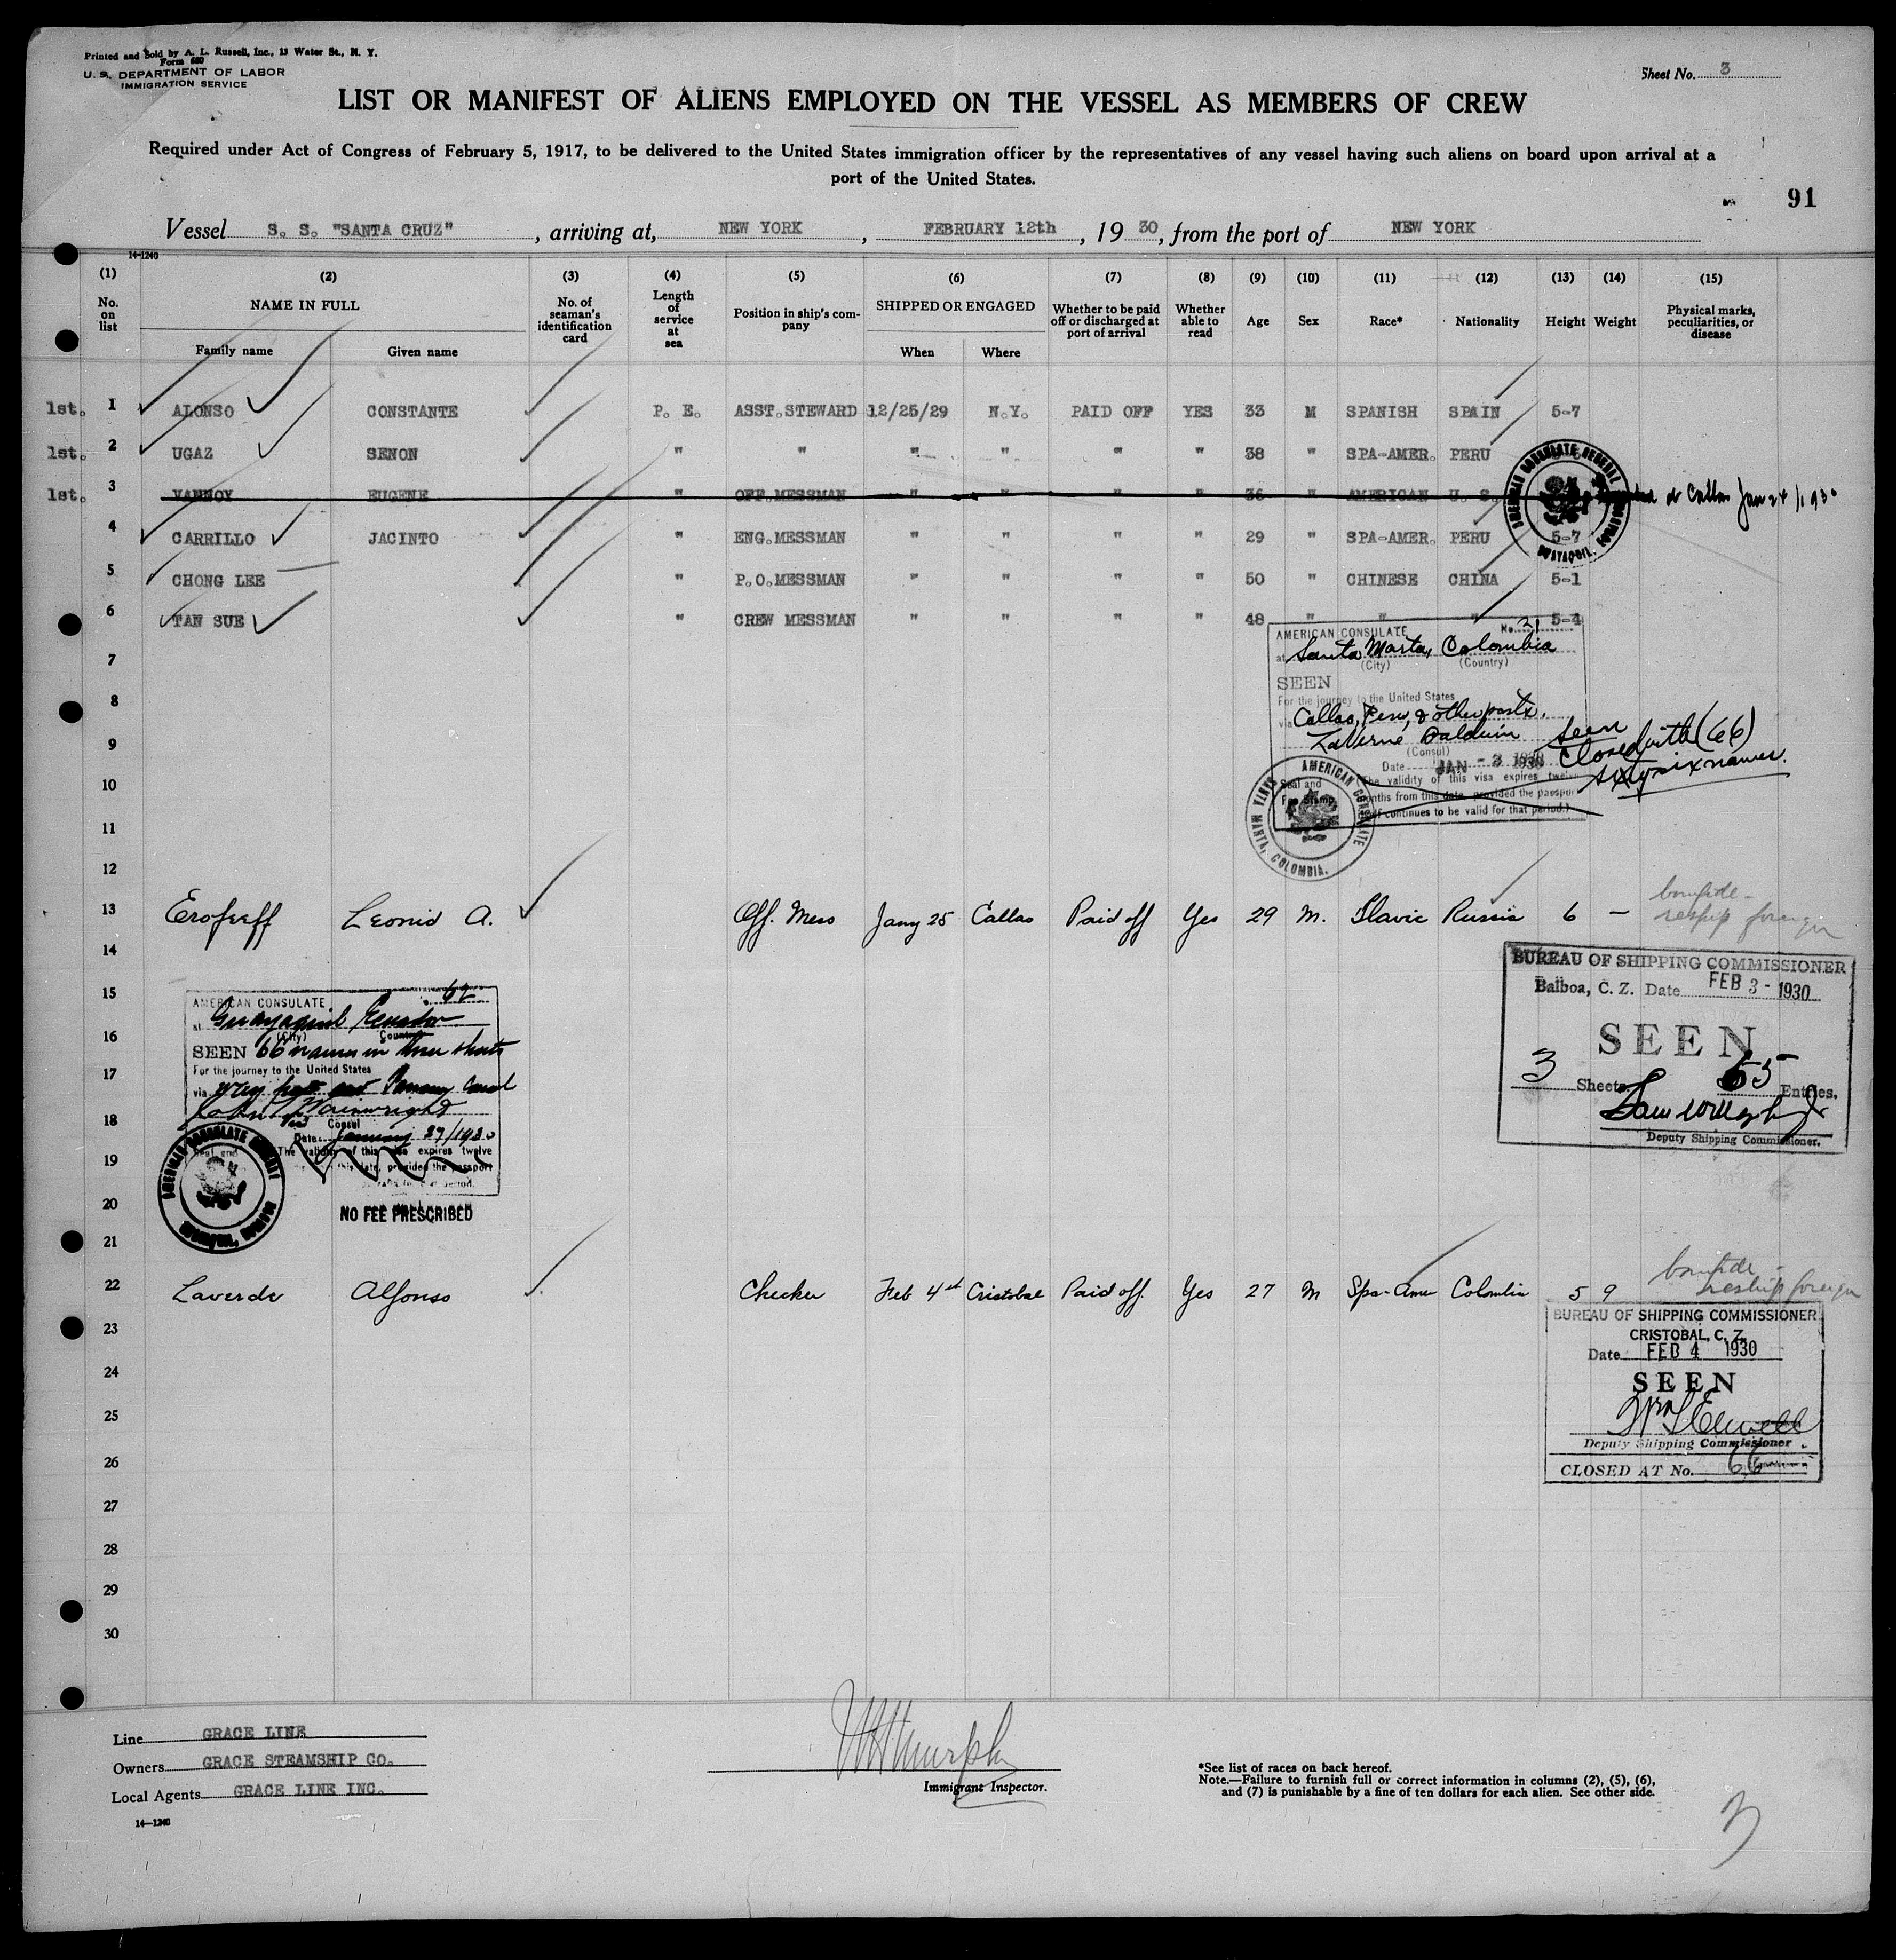 Printed and Sold by A. L. Russell, Inc., 13 Water St., N. Y.
Form 680
U. S. DEPARTMENT OF LABOR
IMMIGRATION SERVICE
Sheet No. 3
LIST OR MANIFEST OF ALIENS EMPLOYED ON THE VESSEL AS MEMBERS OF CREW
Required under Act of Congress of February 5, 1917, to be delivered to the United States immigration officer by the representatives of any vessel having such aliens on board upon arrival at a
port of the United States.
91
Vessel S. S. "SANTA CRUZ", arriving at, NEW YORK, FEBRUARY 12th, 1930, from the port of NEW YORK
14-1240
(1) (2) (3) (4) (5) (6) (7) (8) (9) (10) (11) (12) (13) (14) (15)
No. on list
NAME IN FULL
Family name Given name
No. of seaman's identification card
Length of service at sea
Position in ship's company
SHIPPED OR ENGAGED
When Where
Whether to be paid off or discharged at port of arrival
Whether able to read
Age
Sex
Race*
Nationality
Height
Weight
Physical marks, peculiarities, or disease
1st. 1 ALONSO CONSTANTE P. E. ASST.STEWARD 12/25/29 N.Y. PAID OFF YES 33 M SPANISH SPAIN 5-7
1st. 2 UGAZ SENON " " " " " " 38 " SPA-AMER. PERU
1st. 3 VANNOY EUGENE " OFF.MESSMAN " " " " 36 " AMERICAN U. S. at Callao Jan 24/1930
4 CARRILLO JACINTO " ENG.MESSMAN " " " " 29 " SPA-AMER. PERU 5-7
5 CHONG LEE " P.O.MESSMAN " " " " 50 " CHINESE CHINA 5-1
6 TAN SUE " CREW MESSMAN " " " " 48 " " " 5-4
7
8
9
10
11
12
AMERICAN CONSULATE No. 21
at Santa Marta, Colombia
(City) (Country)
SEEN
For the journey to the United States
via Callao, Peru, & other ports.
LaVerne Baldwin
(Consul)
Date JAN - 3 1930
The validity of this visa expires twelve
months from this date, provided the passport
itself continues to be valid for that period.)
Seal and
Fee Stamp
AMERICAN CONSULATE
SANTA MARTA, COLOMBIA.
Seen
Closed with (66)
sixty six names.
13 Erofeeff Leonid A. Off. Mess Jany 25 Callao Paid off Yes 29 M. Slavic Russia 6 —
bonafide -
reship foreign
14
15
16
17
18
19
20
21
BUREAU OF SHIPPING COMMISSIONER
Balboa, C. Z. Date FEB 3 - 1930
SEEN
3 Sheets. 65 Entries.
Deputy Shipping Commissioner.
AMERICAN CONSULATE 62
at Guayaquil Ecuador
(City) Country
SEEN 66 names in three sheets
For the journey to the United States
via way ports and Panama Canal
John T Wainwright
Vice Consul
Date January 27/1930
The validity of this visa expires twelve
from this date, provided the passport
AMERICAN CONSULATE GENERAL
NO FEE PRESCRIBED
22 Laverde Alfonso Checker Feb 4th Cristobal Paid off. Yes 27 M Spa-Amer Colombia 5 9
bonafide -
reship foreign
BUREAU OF SHIPPING COMMISSIONER
CRISTOBAL, C. Z.
Date FEB 4 1930
SEEN
Deputy Shipping Commissioner.
CLOSED AT No. 66
23
24
25
26
27
28
29
30
Line GRACE LINE
Owners GRACE STEAMSHIP CO.
Local Agents GRACE LINE INC.
14—1240
Immigrant Inspector.
*See list of races on back hereof.
Note.—Failure to furnish full or correct information in columns (2), (5), (6),
and (7) is punishable by a fine of ten dollars for each alien. See other side.
3